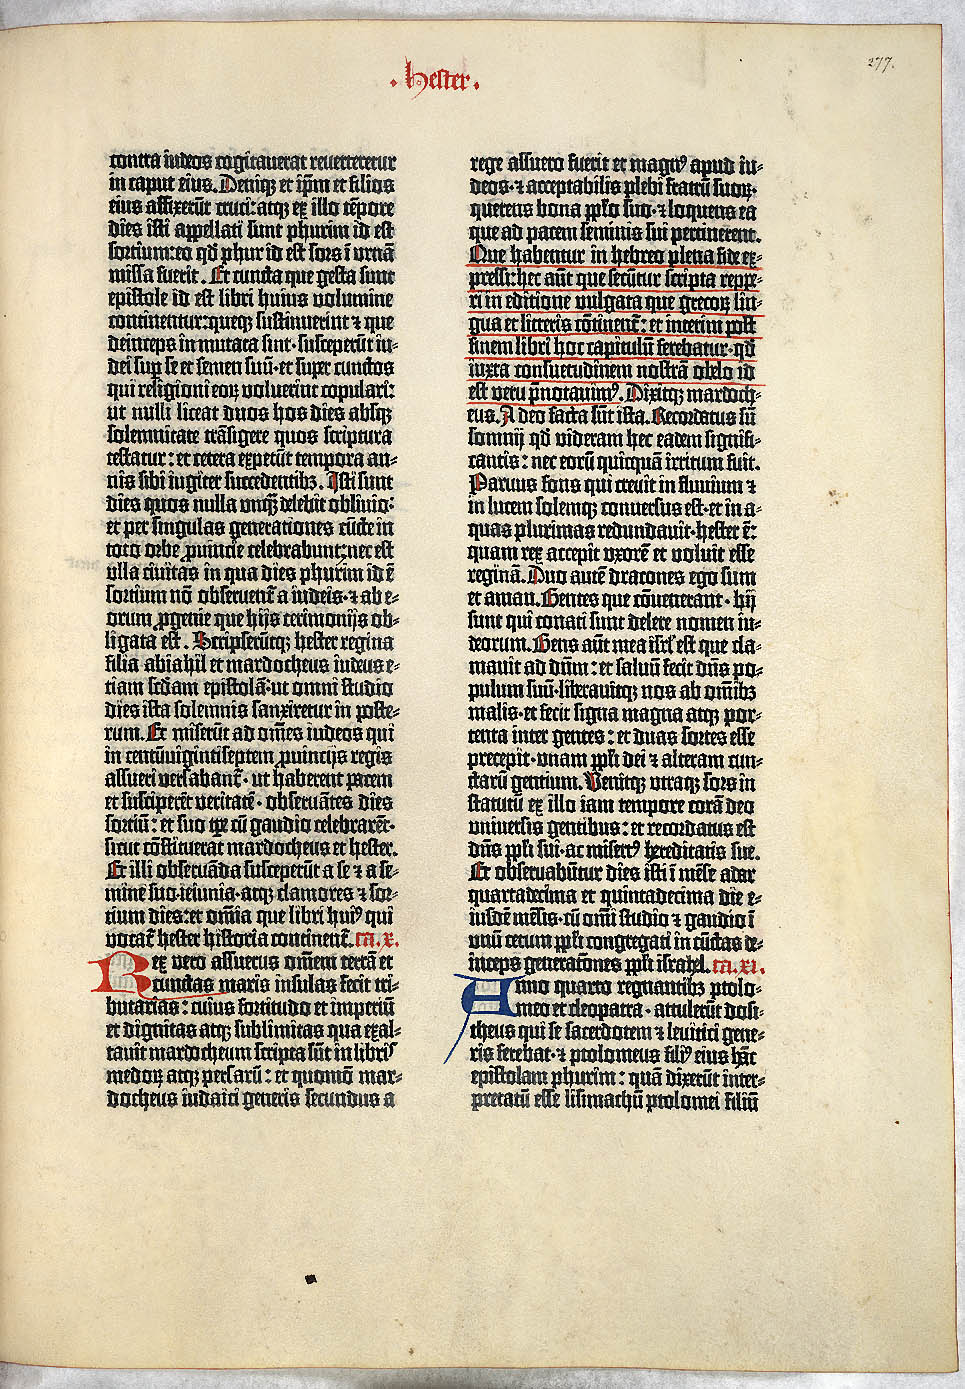 · Hester ·
277.
contra iudeos cogitauerat reuerteretur
in caput eius. Deniqꝫ et ip̄m et filios
eius affixerūt cruci: atqꝫ ex illo tēpore
dies isti appellati sunt phurim id est
sortium: eo qd̓ phur id est sors ī urnā
missa fuerit. Et cuncta que gesta sunt
epistole id est libri huius volumine
continentur: queqꝫ sustinuerint ⁊ que
deinceps in mutata sint· susceperūt iu-
dei sup̱ se et semen suū· et super cunctos
qui religioni eoꝝ voluerint copulari:
ut nulli liceat duos hos dies absqꝫ
solemnitate trāsigere quos scriptura
testatur: et cetera expetūt tempora an-
nis sibi iugiter succedentibꝫ. Isti sunt
dies quos nulla vnqꝫ̄ delebit obliuio:
et per singulas generationes cūcte in
toto orbe ꝓuincie celebrabunt: nec est
vlla ciuitas in qua dies phurim id ē
sortium nō obseruent̄ a iudeis· ⁊ ab e-
orum ꝓgenie que hijs cerimonijs ob-
ligata est. Scripserūtqꝫ hester regina
filia abiahil et mardocheus iudeus e-
tiam scd̄am epistolā: ut omni studio
dies ista solemnis sanxiretur in poste-
rum. Et miserūt ad om̄es iudeos qui
in centūvigintiseptem ꝓuincijs regis
assueri versabant̄· ut haberent pacem
et susciperēt veritatē· obseruātes dies
sortiū: et suo tꝑe cū gaudio celebrarēt·
sicut cōstituerat mardocheus et hester.
Et illi obseruāda susceperūt a se ⁊ a se-
mine suo· ieiunia· atqꝫ clamores ⁊ sor-
tium dies: et om̄ia que libri huiꝰ qui
vocat̄ hester historia continent̄. ca. X.
Rex vero assuerus om̄em terrā et
cunctas maris insulas fecit tri-
butarias: cuius fortitudo et imperiū
et dignitas atqꝫ sublimitas qua exal-
tauit mardocheum scripta sūt in libris
medoꝝ atqꝫ persarū: et quomō mar-
docheus iudaici generis secundus a
rege assuero fuerit et magnꝰ apud iu-
deos· ⁊ acceptabilis plebi fratrū suoꝝ·
querens bona pp̄lo suo· ⁊ loquens ea
que ad pacem seminis sui pertinerent.
Que habentur in hebreo plena fide ex-
pressi: hec aūt que secūtur scripta reppe-
ri in editione vulgata que grecoꝝ lin-
gua et litteris cōtinent̄: et interim post
finem libri hoc capitulū ferebatur· qd̓
iuxta consuetudinem nostrā obelo id
est veru p̄notauimꝰ. Dixitqꝫ mardoch-
eus. A deo facta sūt ista. Recordatus sū
somnij qd̓ videram hec eadem signifi-
cantis: nec eorū quicquā irritum fuit.
Paruus fons qui creuit in fluuium ⁊
in lucem solemqꝫ conuersus est· et in a-
quas plurimas redundauit· hester ē:
quam rex accepit vxorē et voluit esse
reginā. Duo autē dracones ego sum
et aman. Gentes que cōuenerant· hij
sunt qui conati sunt delere nomen iu-
deorum. Gens aūt mea isrl̓ est que cla-
mauit ad dn̄m: et saluū fecit dn̄s po-
pulum suū· liberauitqꝫ nos ab om̄ibꝫ
malis· et fecit signa magna atqꝫ por-
tenta inter gentes: et duas sortes esse
precepit· vnam pp̄li dei ⁊ alteram cun-
ctarū gentium. Venitqꝫ vtraqꝫ sors in
statutū ex illo iam tempore corā deo
vniuersis gentibus: et recordatus est
dn̄s pp̄li sui· ac misertꝰ hereditatis sue.
Et obseruabūtur dies isti ī mēse adar
quartadecima et quintadecima die e-
iusdē mēsis· cū om̄i studio ⁊ gaudio ī
vnū cetum pp̄li congregati in cūctas de-
inceps generatōnes pp̄li israhel. ca. XI.
Anno quarto regnantibꝫ ptolo-
meo et cleopatra· attulerūt dosi-
theus qui se sacerdotem ⁊ leuitici gene-
ris ferebat· ⁊ ptolomeus filiꝰ eius hāc
epistolam phurim: quā dixerūt inter-
pretatū esse lisimachū ptolomei filiū